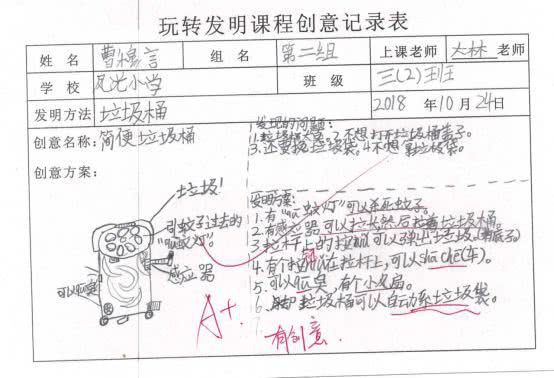 玩转发明课程创意记录表
姓 名 曹穆言 组 名 第二组 上课老师 大林 老师
学 校 凤光小学 班 级 三(2)班
发明方法: 垃圾桶 2018 年 10 月 24 日
创意名称: 简便垃圾桶
发现的问题:
1.垃圾桶太臭。2.不想打开垃圾桶盖子。
3.还要换垃圾袋。4.不想 垃圾袋。
创意方案:
垃圾!
引蚊子过去的
蚊灯"。
感应器
可以 臭
发明方案:
1.有 蚊灯"可以杀死蚊子。
2.有感应器可以拉长然后 垃圾桶。
3.拉杆上的 可以弹出垃圾
4.有个 在拉杆上,可以sha chē(车)。
5.可以 臭,有个小风扇。
6. 垃圾桶可以自动系垃圾袋。
7.
A+.
有创意.